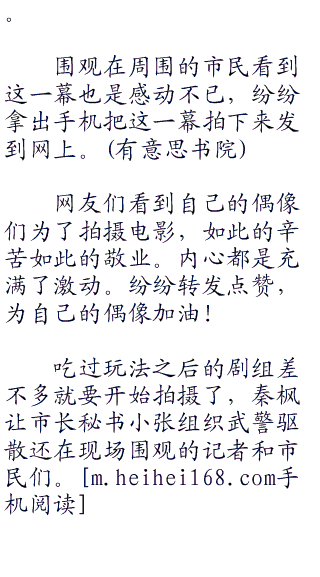 。
围观在周围的市民看到
这一幕也是感动不已，纷纷
拿出手机把这一幕拍下来发
到网上。(有意思书院)
网友们看到自己的偶像
们为了拍摄电影，如此的辛
苦如此的敬业。内心都是充
满了激动。纷纷转发点赞，
为自己的偶像加油！
吃过玩法之后的剧组差
不多就要开始拍摄了，秦枫
让市长秘书小张组织武警驱
散还在现场围观的记者和市
民们。[m.heihei168.com手
机阅读]